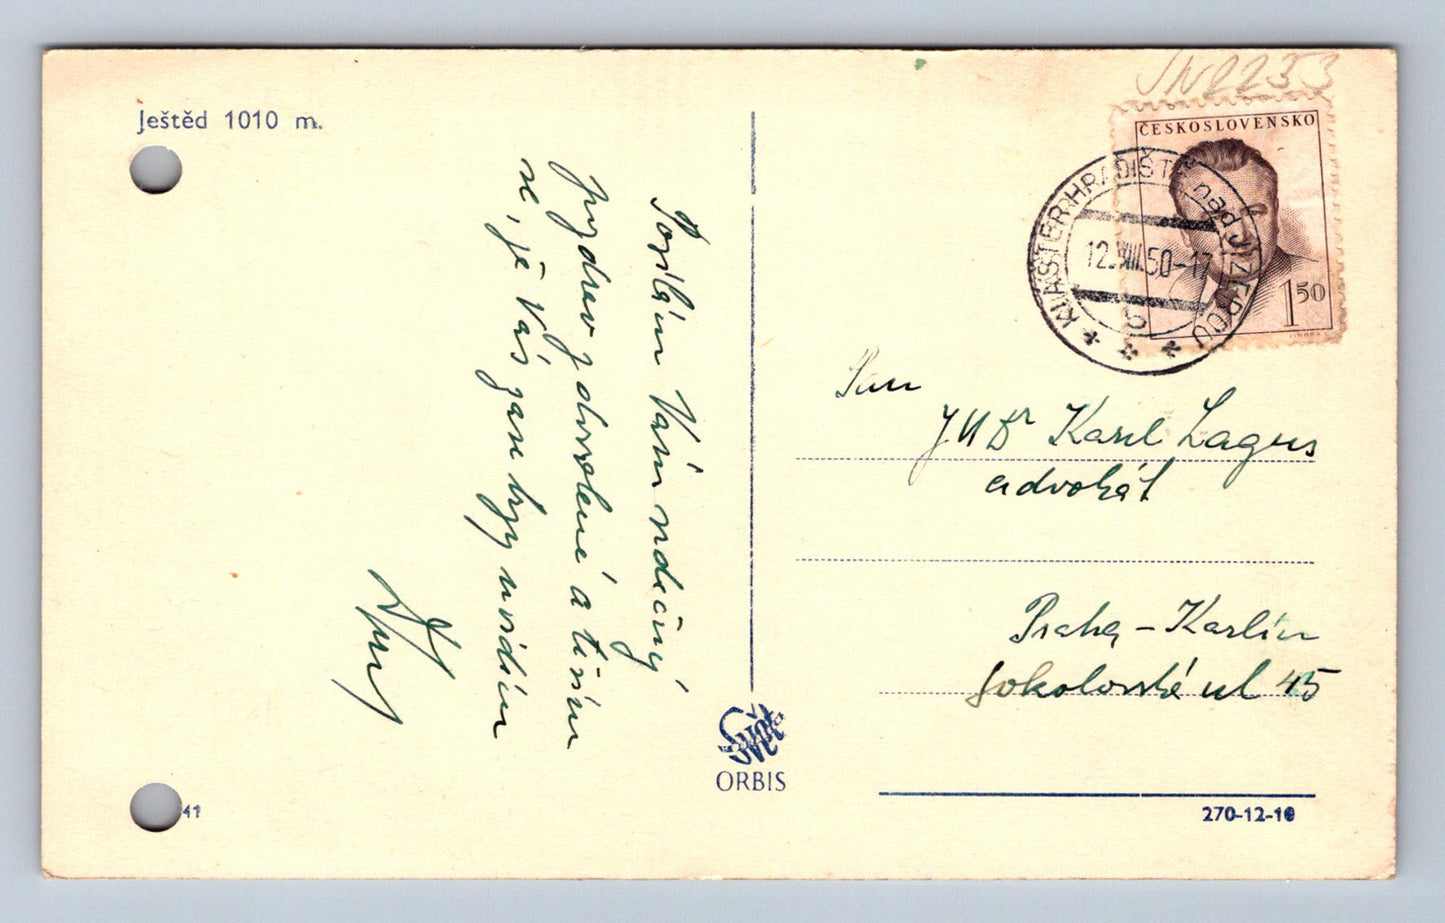 Ještěd 1010 m.
JN2233
ČESKOSLOVENSKO
1 50
KLÁŠTER HRADIŠTĚ nad JIZEROU
12.VIII.50-17
b
Posílám Vám srdečný
pozdrav z dovolené a těším
se, že Vás zase brzy uvidím
Pan
JUDr Karel Lagus
advokát
Praha-Karlín
Sokolovská ul 45
ORBIS
41
270-12-10